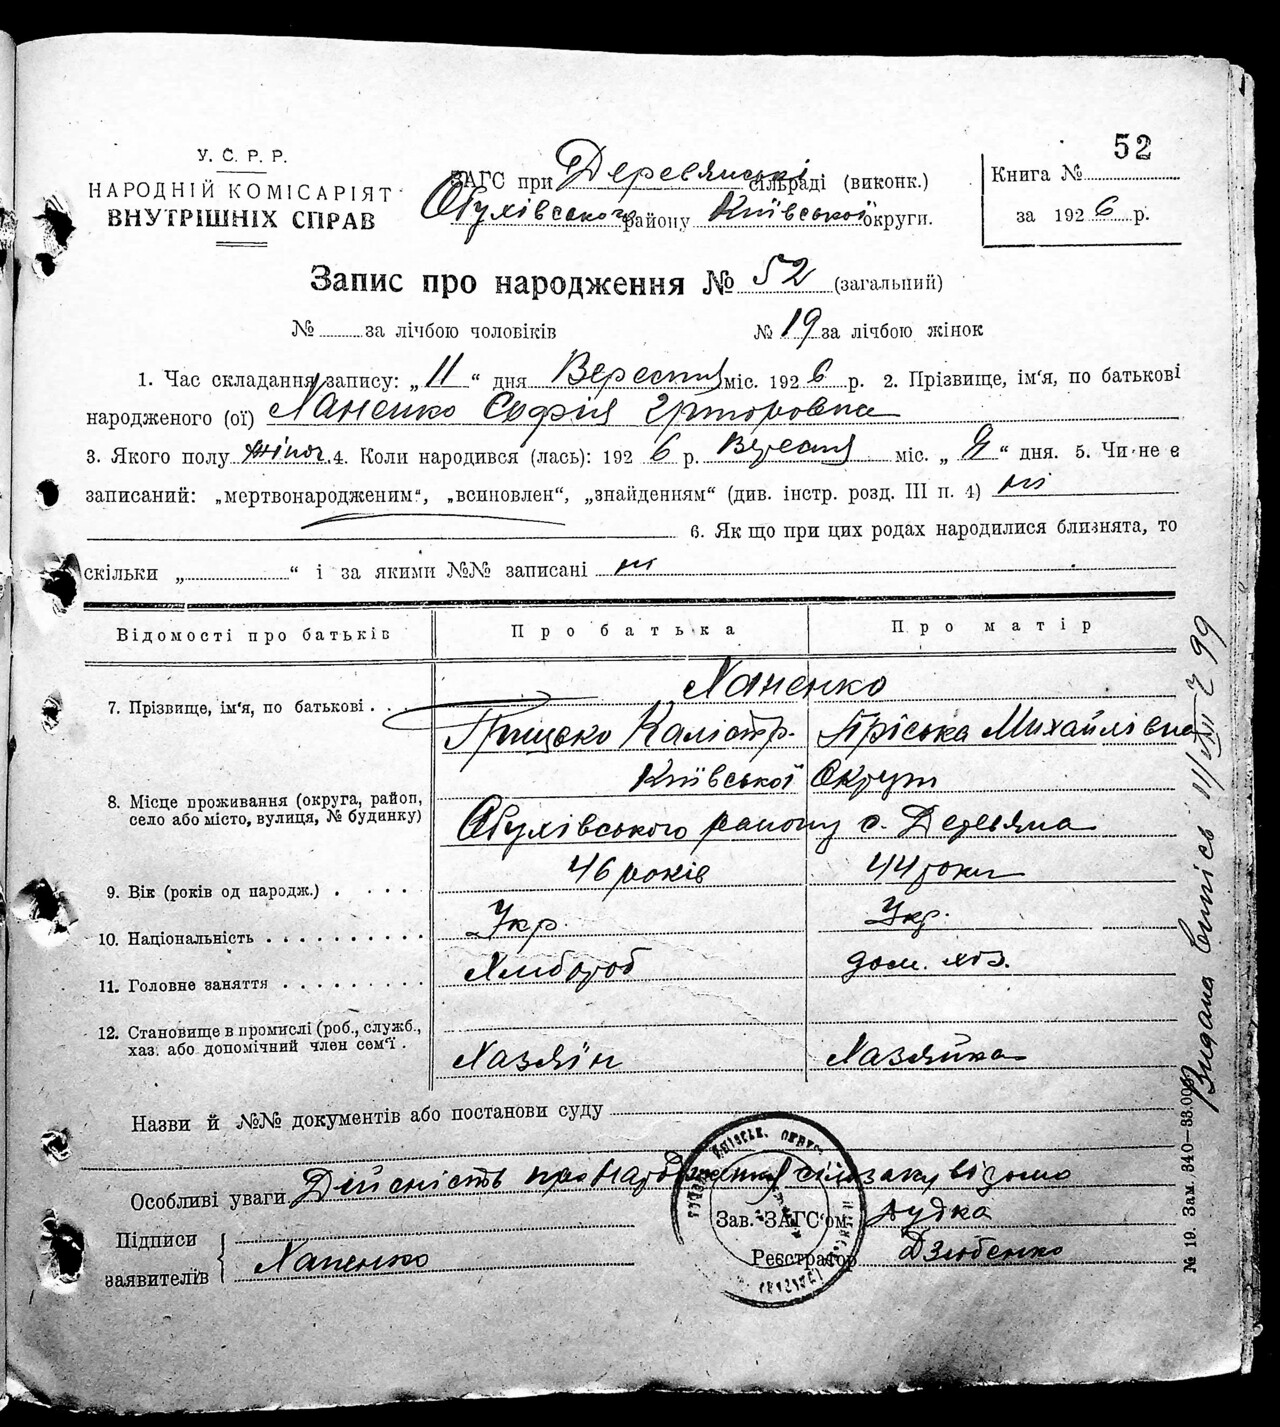 52
У. С. Р. Р.
НАРОДНІЙ КОМІСАРІЯТ
ВНУТРІШНІХ СПРАВ
ЗАГС при Деревянські сільраді (виконк.)
Обухівського району Київської округи.
Книга №
за 1926 р.
Запис про народження № 52 (загальний)
№ за лічбою чоловіків № 19 за лічбою жінок
1. Час складання запису: „ 11 “ дня Вересня міс. 1926 р. 2. Прізвище, ім'я, по батькові
народженого (ої) Ханенко Софія
3. Якого полу жіноч. 4. Коли народився (лась): 1926 р. Вересня міс. „ “ дня. 5. Чи не є
записаний: „мертвонародженим“, „всиновлен“, „знайденням“ (див. інстр. розд. III п. 4) ні
6. Як що при цих родах народилися близнята, то
скільки „ “ і за якими №№ записані ні
Відомості про батьків Про батька Про матір
Ханенко
7. Прізвище, ім'я, по батькові . . . Грицько Калістр. Пріська Михайлівна
Київської Округи
8. Місце проживання (округа, район,
село або місто, вулиця, № будинку) Обухівського району с. Деревяна
9. Вік (років од народж.) . . . . 46 років 44 роки
10. Національність . . . . . . . . . . Укр. Укр.
11. Головне заняття . . . . . . . . . Хлибороб дом. хоз.
12. Становище в промислі (роб., служб.,
хаз. або допомічний член сем'ї . Хазяїн Хазяйка
Назви й №№ документів або постанови суду
Особливі уваги Дійсність про народження сільзаку відомо
Підписи
заявителів Ханенко
Зав. ЗАГС'ом Дудка
Реєстратор Дзюбенко
Видана випісь
№ 19. Зам. 340—33.000